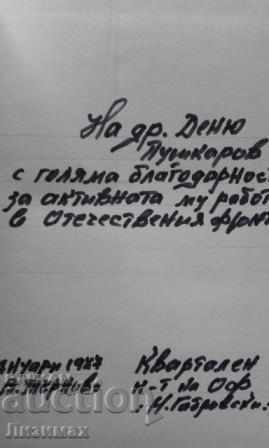 На др. Деню
Пушкаров
с голяма благодарност
за активната му работ
в Отечествения фронт
януари 1987 Квартален
В. Търново к-т на ОФ
"Н. Габровски"
auction.bg
Лизимах